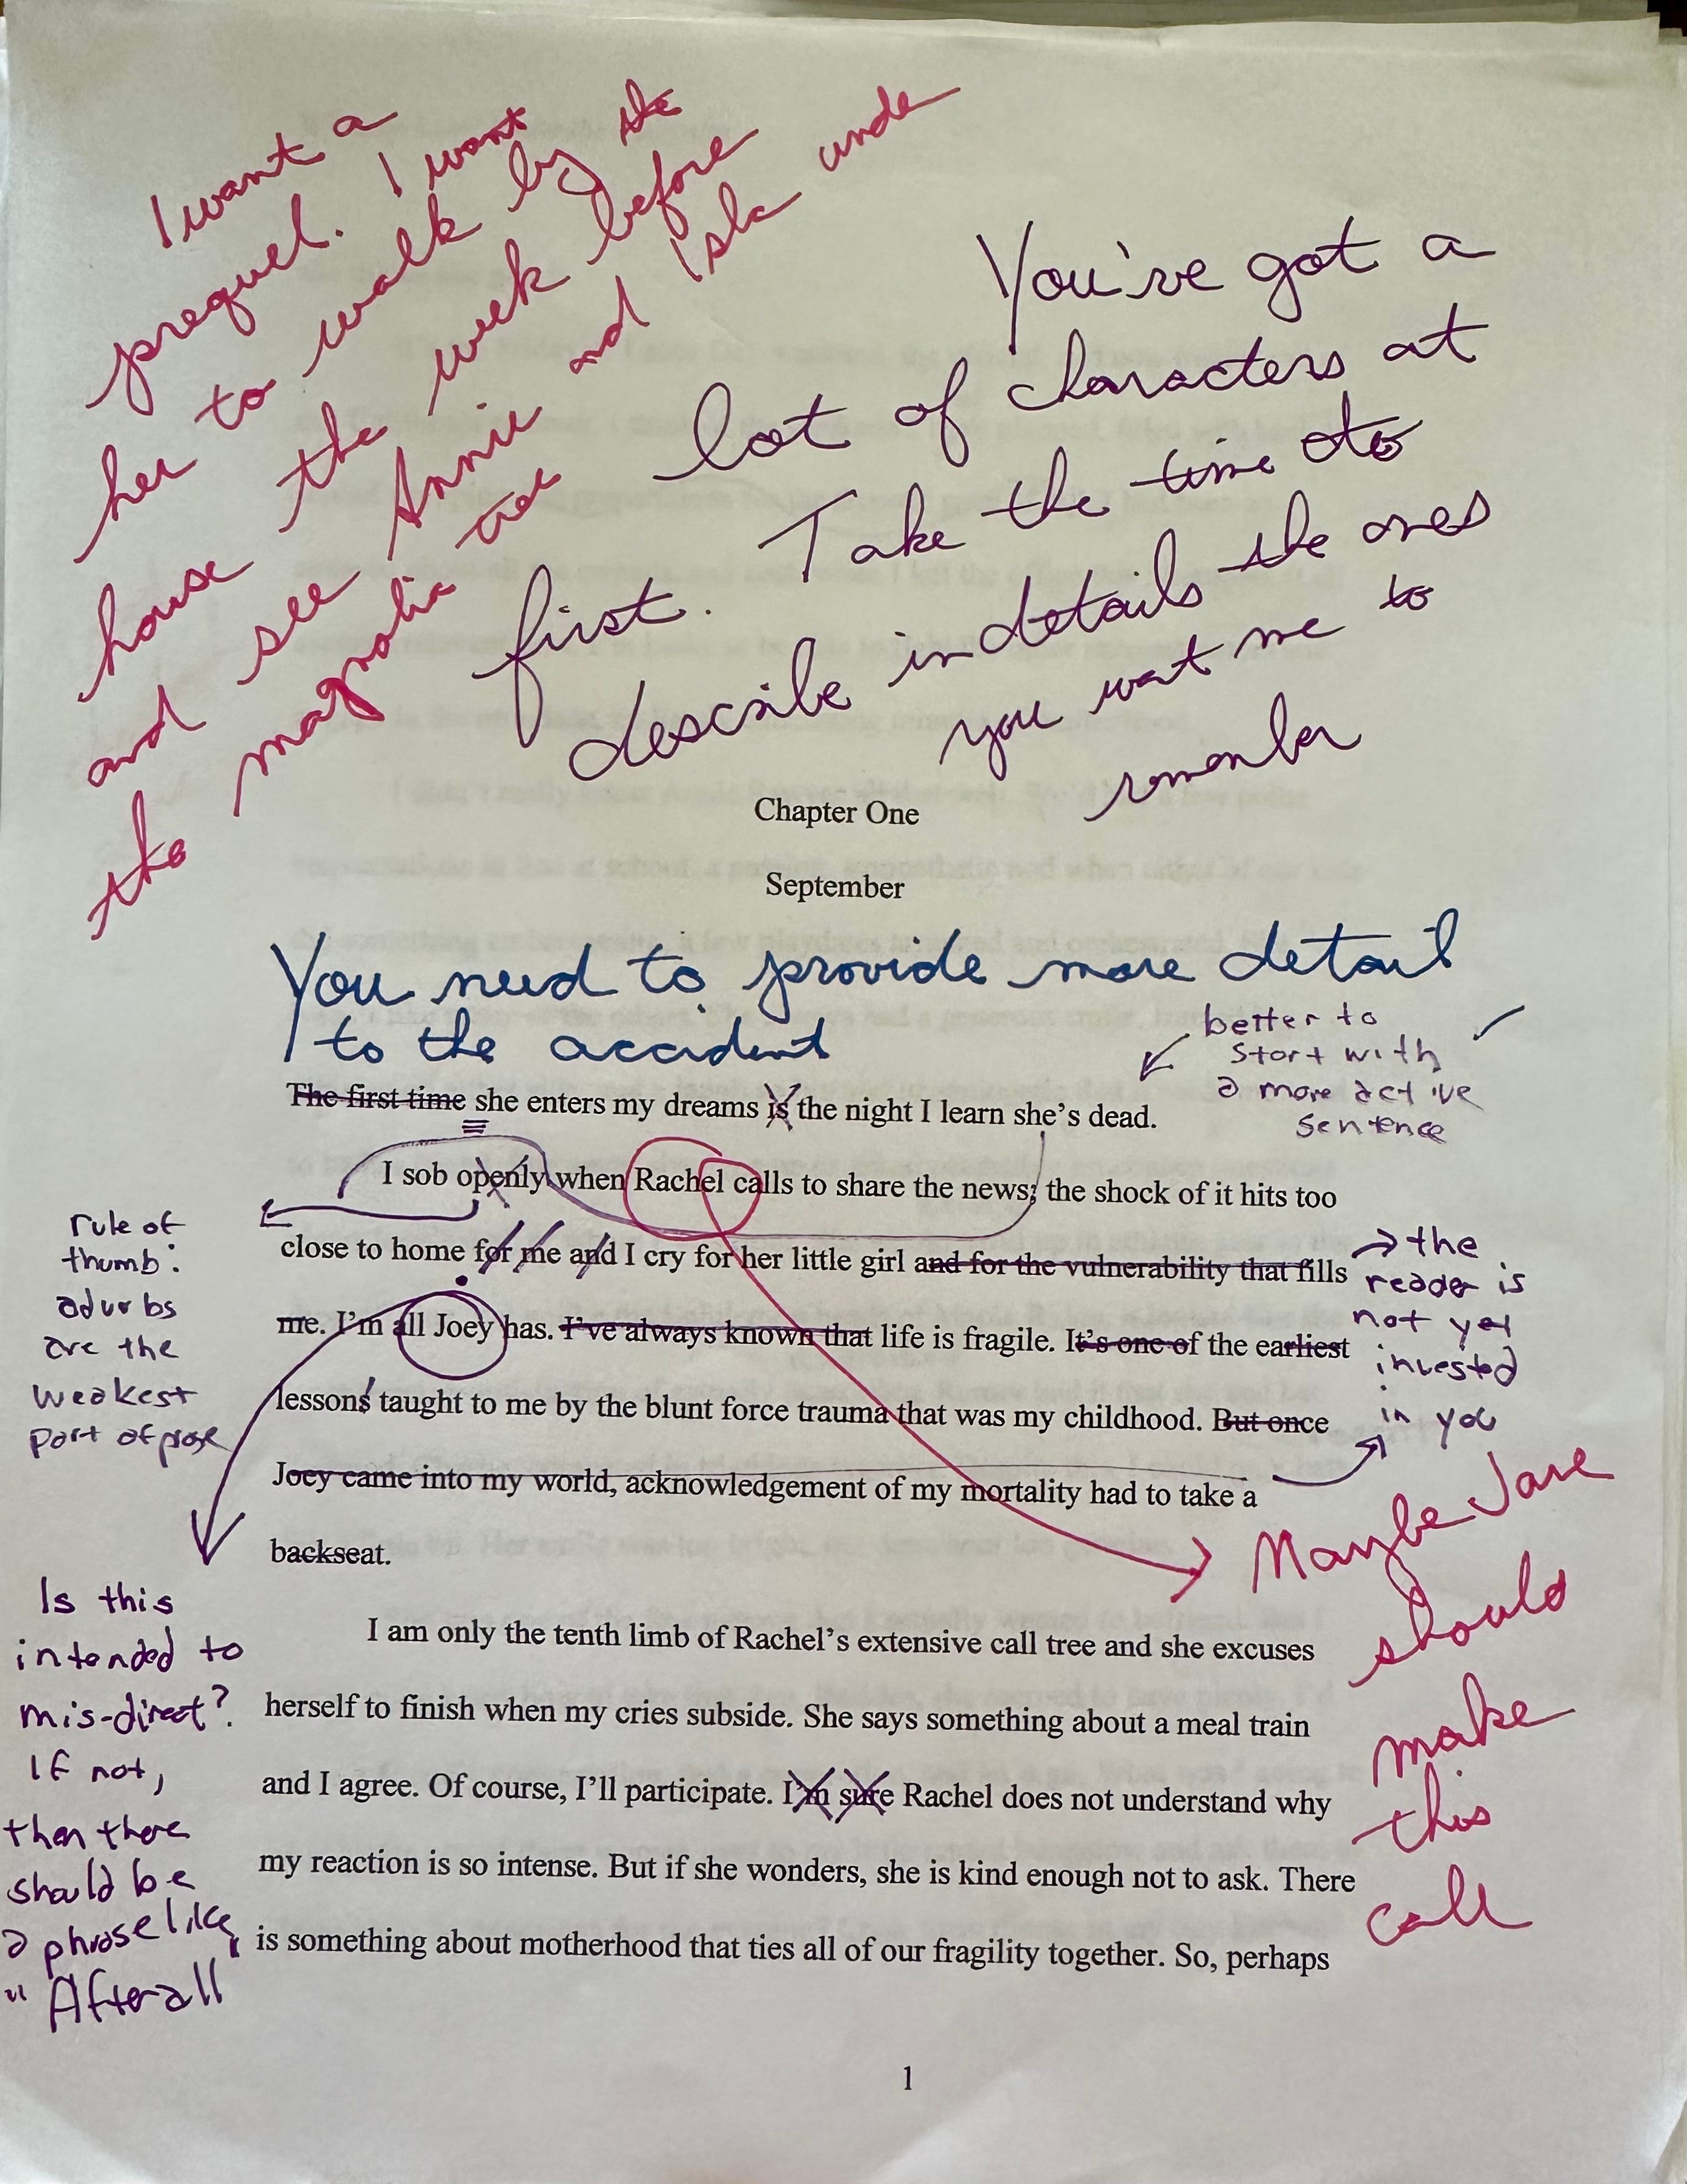 I want a
prequel. I want
her to walk by the
house the week before
and see Annie and Isla unde
the magnolia tree
You've got a
lot of characters at
first. Take the time to
describe in details the ones
you want me to
remember
Chapter One
September
You need to provide more detail
to the accident
better to
start with
a more active
sentence
The first time she enters my dreams is the night I learn she's dead.
I sob openly when Rachel calls to share the news; the shock of it hits too
close to home for me and I cry for her little girl and for the vulnerability that fills
me. I'm all Joey has. I've always known that life is fragile. It's one of the earliest
lessons taught to me by the blunt force trauma that was my childhood. But once
Joey came into my world, acknowledgement of my mortality had to take a
backseat.
rule of
thumb:
adverbs
are the
weakest
part of prose
the
reader is
not yet
invested
in you
Maybe Jane
should
make
this
call
Is this
intended to
mis-direct?
If not,
then there
should be
a phrase like,
"Afterall
I am only the tenth limb of Rachel's extensive call tree and she excuses
herself to finish when my cries subside. She says something about a meal train
and I agree. Of course, I'll participate. I'm sure Rachel does not understand why
my reaction is so intense. But if she wonders, she is kind enough not to ask. There
is something about motherhood that ties all of our fragility together. So, perhaps
1